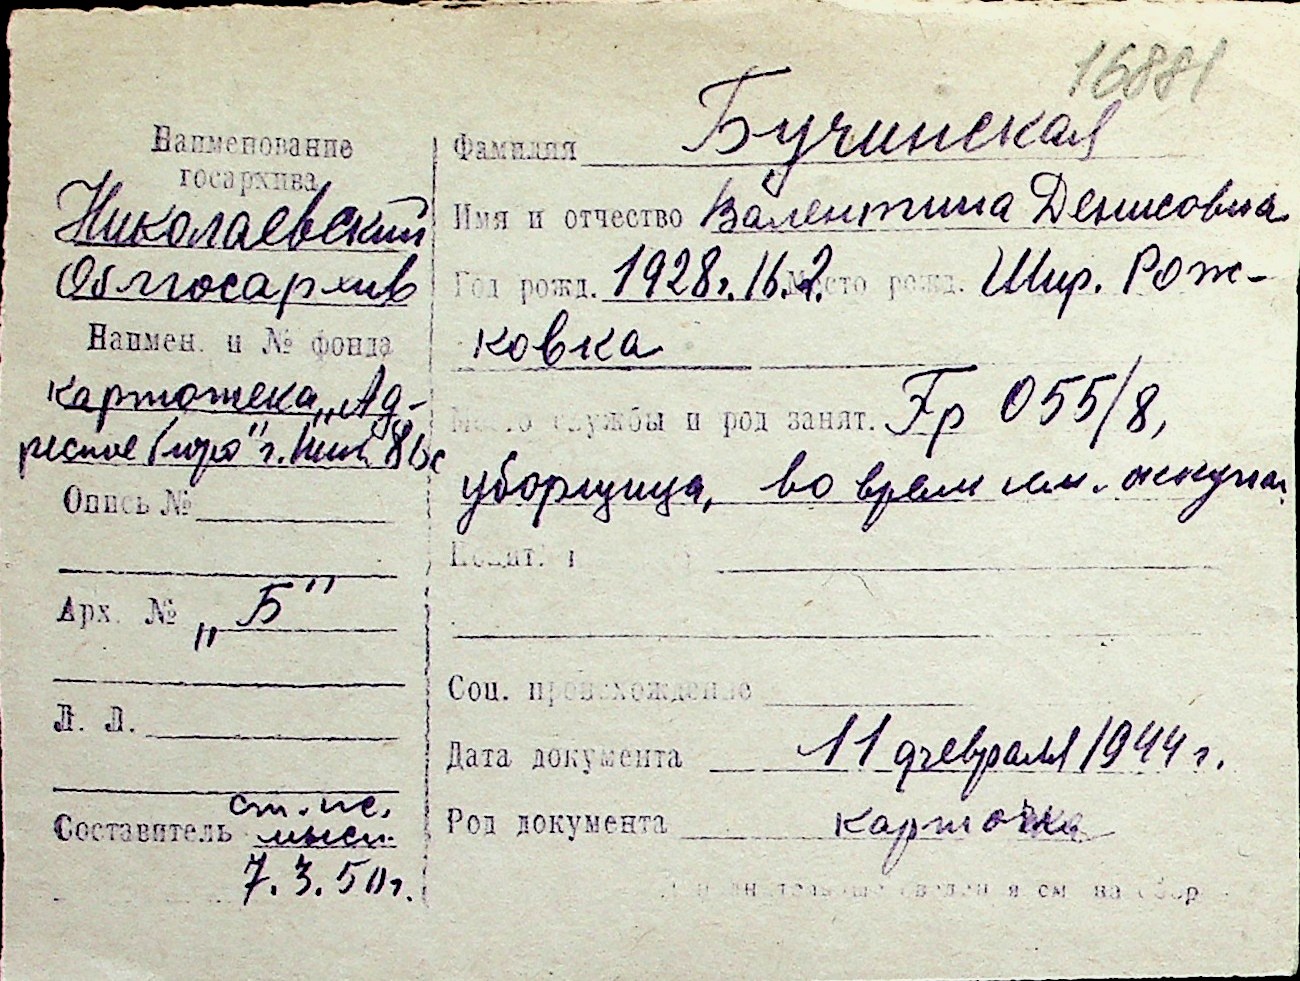 16881
Наименование
госархива
Николаевский
Облгосархив
Наимен. и № фонда
картотека „Ад-
ресное бюро" г. Ник
Опись №
Арх. № „Б"
Л. Л.
Составитель ст. н.с.
7.3.50 г.
Фамилия Бучинская
Имя и отчество Валентина Денисовна
Год рожд. 1928 г. 16.2. Место рожд. Шир. Рож-
ковка
Место службы и род занят. Fp 055/8,
уборщица, во врем нем. оккупац.
Соц. происхождение
Дата документа 11 февраля 1944 г.
Род документа карточка
сведения см. на обор